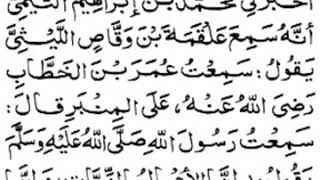 أخبرني محمد بن إبراهيم التيمي
أَنَّهُ سَمِعَ عَلْقَمَةَ بْنَ وَقَّاصٍ اللَّيْثِيَّ
يَقُولُ: سَمِعْتُ عُمَرَ بْنَ الْخَطَّابِ
رَضِيَ اللَّهُ عَنْهُ، عَلَى الْمِنْبَرِ قَالَ:
سَمِعْتُ رَسُولَ اللَّهِ صَلَّى اللَّهُ عَلَيْهِ وَسَلَّمَ